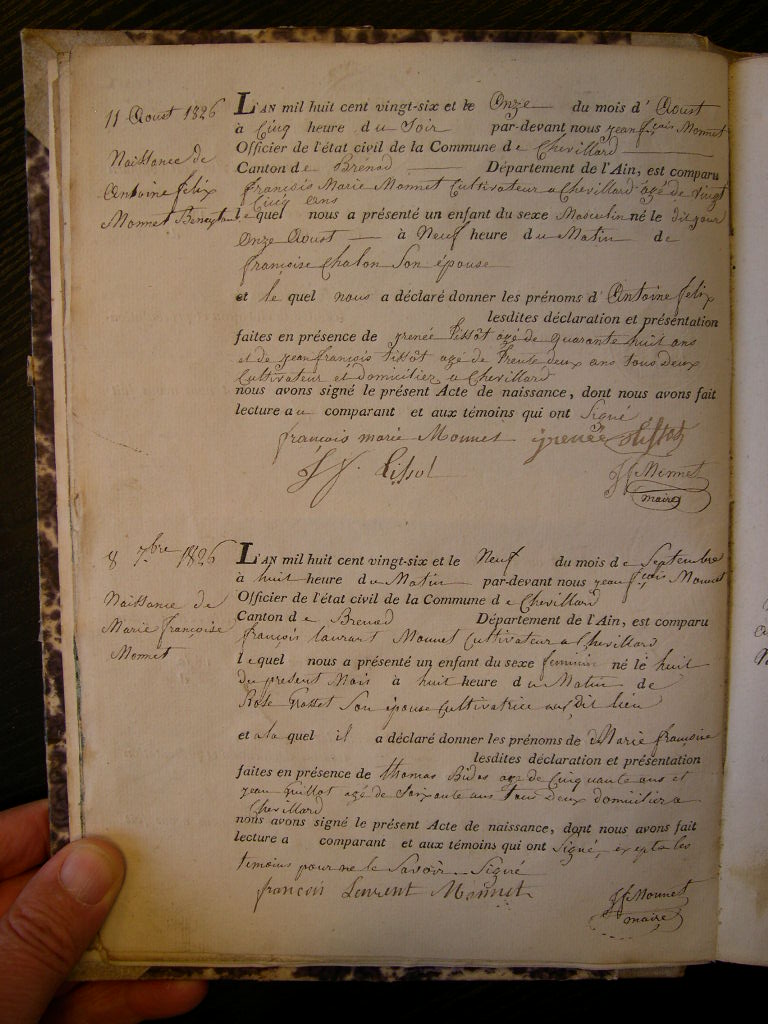 11 Aoust 1826
Naissance de
Antoine felix
Monnet
L'AN mil huit cent vingt-six et le Onze du mois d' Aoust
à Cinq heure du Soir par-devant nous jean fçois Monnet
Officier de l'état civil de la Commune de Chevillard
Canton de Brénod Département de l'Ain, est comparu
françois Marie Monnet Cultivateur a Chevillard agé de vingt
Cinq ans
lequel nous a présenté un enfant du sexe Masculin né le dit jour
Onze Aoust à Neuf heure du Matin de
françoise Chalon Son épouse
et le quel nous a déclaré donner les prénoms d' Antoine felix
lesdites déclaration et présentation
faites en présence de grenée tissot agé de quarante huit ans
et de jean françois tissot agé de trente deux ans tous deux
Cultivateur et domiciliez a Chevillard
nous avons signé le présent Acte de naissance, dont nous avons fait
lecture au comparant et aux témoins qui ont Signé
françois marie Monnet grenée tissot
J f. Tissot
Jf Monnet
maire
8 7bre 1826
Naissance de
Marie françoise
Monnet
L'AN mil huit cent vingt-six et le Neuf du mois de Septembre
à huit heure du Matin par-devant nous jean fçois Monnet
Officier de l'état civil de la Commune de Chevillard
Canton de Brenod Département de l'Ain, est comparu
françois laurant Monnet Cultivateur a Chevillard
lequel nous a présenté un enfant du sexe feminin né le huit
du present Mois à huit heure du Matin de
Rose Grosset Son épouse Cultivatrice audit lieu
et ala quel il a déclaré donner les prénoms de Marie françoise
lesdites déclaration et présentation
faites en présence de thomas agé de Cinquante ans et
jean guillot agé de Soixante ans tous deux domiciliez a
Chevillard
nous avons signé le présent Acte de naissance, dont nous avons fait
lecture a comparant et aux témoins qui ont Signé, excepté les
temoins pour ne le Savoir Signé
françois Laurent Monnet
Jf Monnet
maire